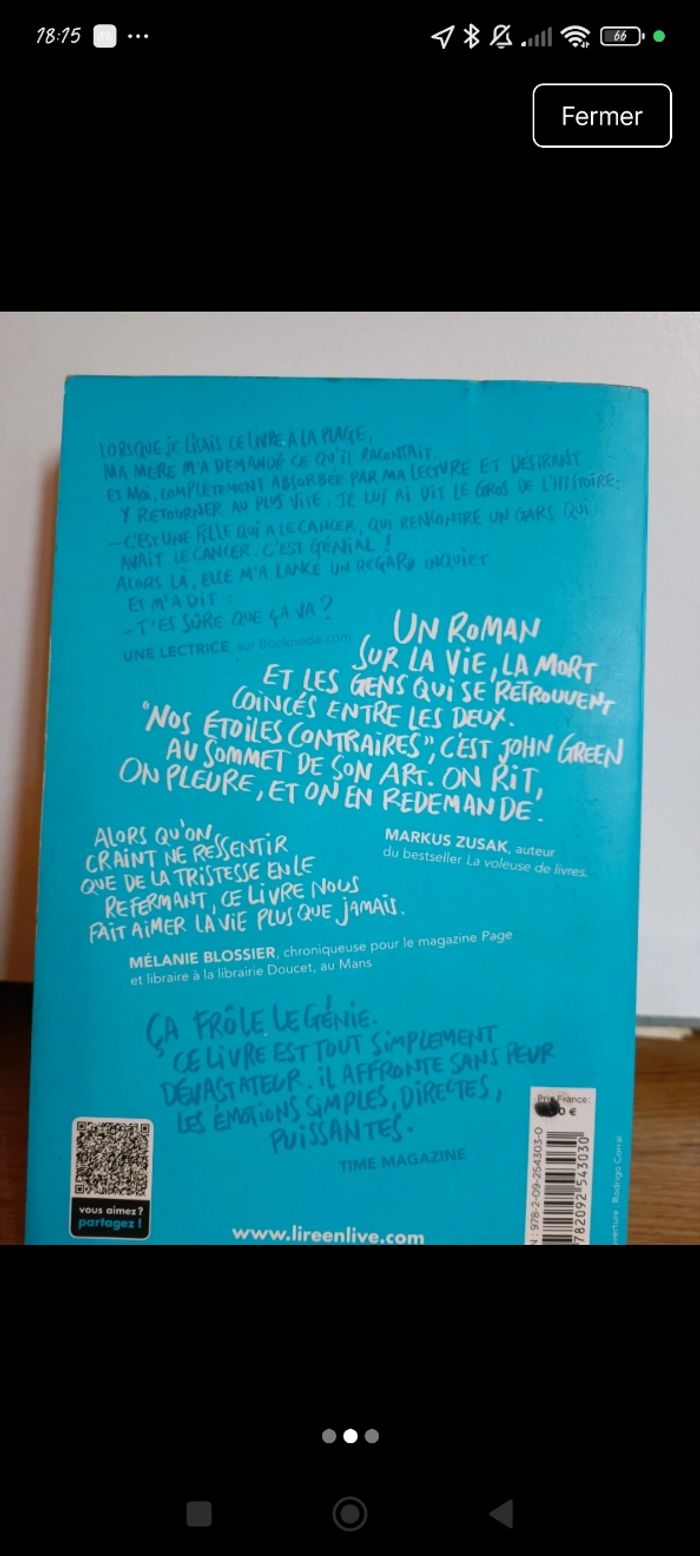 18:15
66
Fermer
LORSQUE JE LISAIS CE LIVRE À LA PLAGE,
MA MÈRE M'A DEMANDÉ CE QU'IL RACONTAIT.
ET MOI, COMPLÈTEMENT ABSORBÉE PAR MA LECTURE ET DÉSIRANT
Y RETOURNER AU PLUS VITE, JE LUI AI DIT LE GROS DE L'HISTOIRE:
—C'EST UNE FILLE QUI A LE CANCER, QUI RENCONTRE UN GARS QUI
AVAIT LE CANCER. C'EST GÉNIAL !
ALORS LÀ, ELLE M'A LANCÉ UN REGARD INQUIET
ET M'A DIT :
—T'ES SÛRE QUE ÇA VA ?
UNE LECTRICE, sur Booknode.com
UN ROMAN
SUR LA VIE, LA MORT
ET LES GENS QUI SE RETROUVENT
COINCÉS ENTRE LES DEUX.
"NOS ÉTOILES CONTRAIRES", C'EST JOHN GREEN
AU SOMMET DE SON ART. ON RIT,
ON PLEURE, ET ON EN REDEMANDE.
MARKUS ZUSAK, auteur
du bestseller La voleuse de livres.
ALORS QU'ON
CRAINT NE RESSENTIR
QUE DE LA TRISTESSE EN LE
REFERMANT, CE LIVRE NOUS
FAIT AIMER LA VIE PLUS QUE JAMAIS.
MÉLANIE BLOSSIER, chroniqueuse pour le magazine Page
et libraire à la librairie Doucet, au Mans
ÇA FRÔLE LE GÉNIE.
CE LIVRE EST TOUT SIMPLEMENT
DÉVASTATEUR. IL AFFRONTE SANS PEUR
LES ÉMOTIONS SIMPLES, DIRECTES,
PUISSANTES.
TIME MAGAZINE
vous aimez ?
partagez !
www.lireenlive.com
Prix France :
50 €
N : 978-2-09-254303-0
782092 543030
Rodrigo Corral